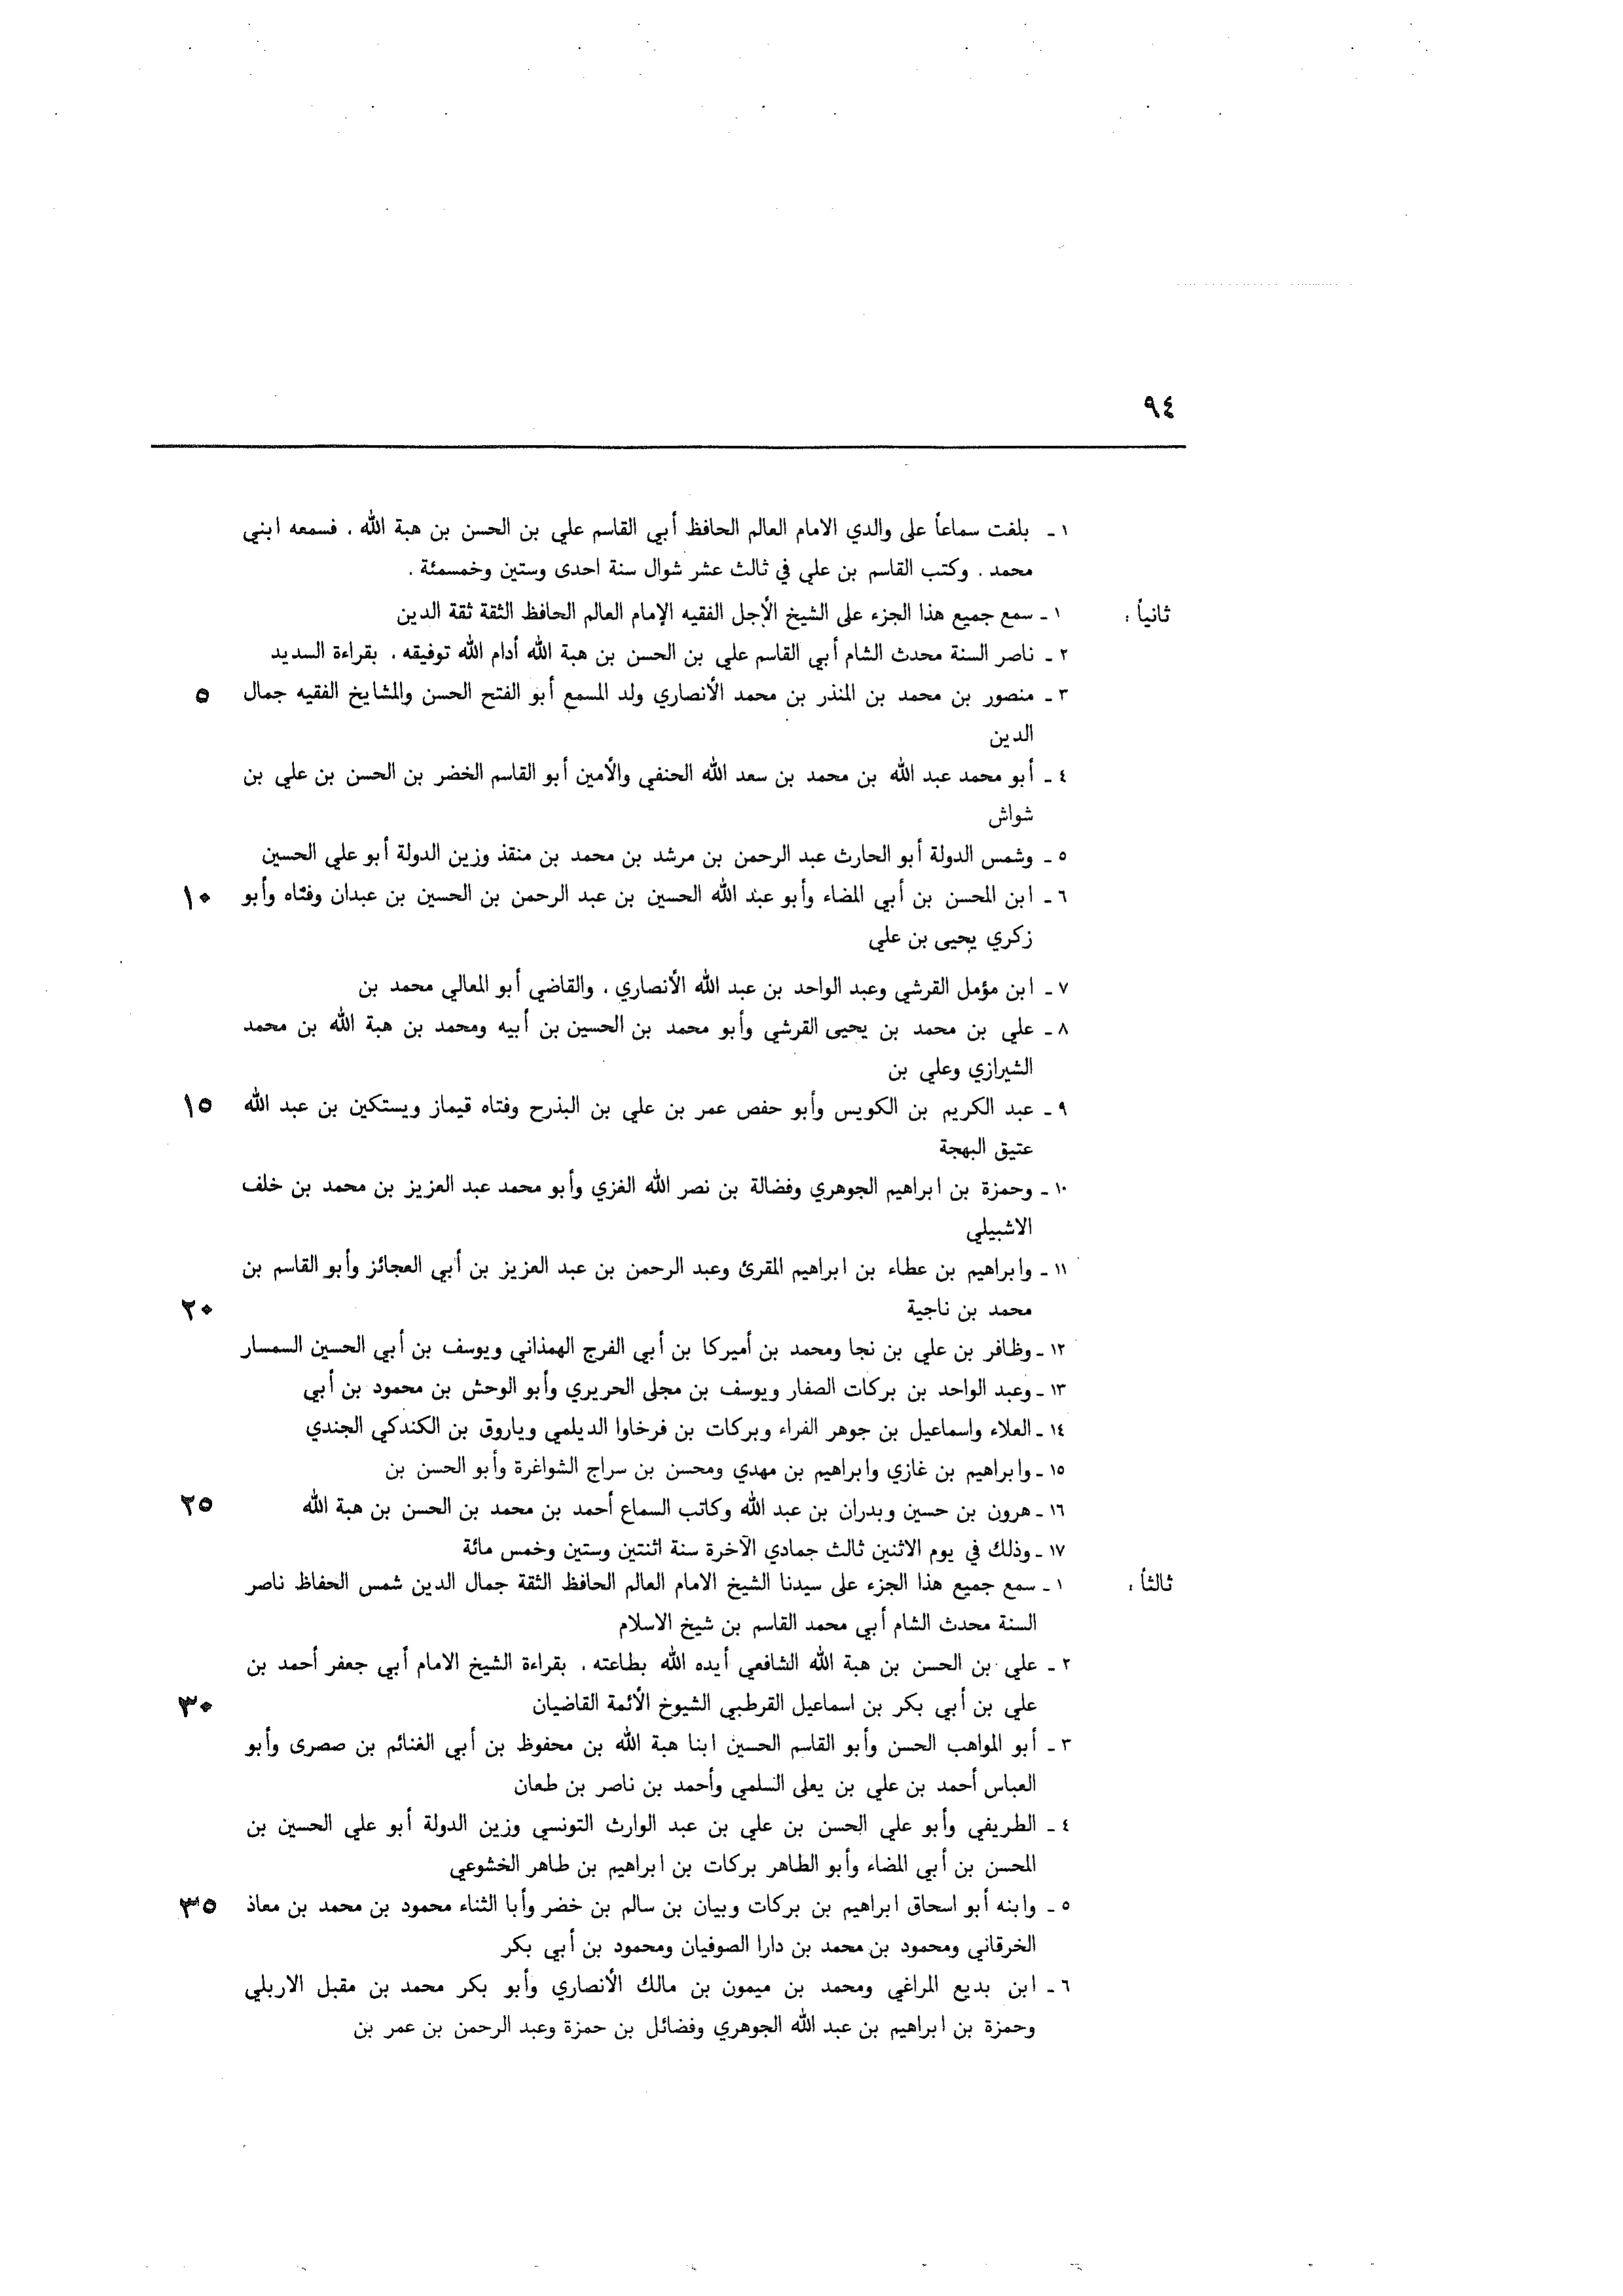 ٩٤
١ ـ بلغت سماعاً على والدي الامام العالم الحافظ أبي القاسم علي بن الحسن بن هبة الله ، فسمعه ابني
محمد . وكتب القاسم بن علي في ثالث عشر شوال سنة احدى وستين وخمسمئة .
ثانياً : ١ ـ سمع جميع هذا الجزء على الشيخ الأجل الفقيه الإمام العالم الحافظ الثقة ثقة الدين
٢ ـ ناصر السنة محدث الشام أبي القاسم علي بن الحسن بن هبة الله أدام الله توفيقه ، بقراءة السديد
٣ ـ منصور بن محمد بن المنذر بن محمد الأنصاري ولد المسمع أبو الفتح الحسن والمشايخ الفقيه جمال ٥
الدين
٤ ـ أبو محمد عبد الله بن محمد بن سعد الله الحنفي والأمين أبو القاسم الخضر بن الحسن بن علي بن
شواش
٥ ـ وشمس الدولة أبو الحارث عبد الرحمن بن مرشد بن محمد بن منقذ وزين الدولة أبو علي الحسين
٦ ـ ابن المحسن بن أبي المضاء وأبو عبد الله الحسين بن عبد الرحمن بن الحسين بن عبدان وفتاه وأبو ١٠
زكري يحيى بن علي
٧ ـ ابن مؤمل القرشي وعبد الواحد بن عبد الله الأنصاري ، والقاضي أبو المعالي محمد بن
٨ ـ علي بن محمد بن يحيى القرشي وأبو محمد بن الحسين بن أبيه ومحمد بن هبة الله بن محمد
الشيرازي وعلي بن
٩ ـ عبد الكريم بن الكويس وأبو حفص عمر بن علي بن البذرح وفتاه قيماز ويستكين بن عبد الله ١٥
عتيق البهجة
١٠ ـ وحمزة بن ابراهيم الجوهري وفضالة بن نصر الله الغزي وأبو محمد عبد العزيز بن محمد بن خلف
الاشبيلي
١١ ـ وابراهيم بن عطاء بن ابراهيم المقرئ وعبد الرحمن بن عبد العزيز بن أبي العجائز وأبو القاسم بن
محمد بن ناجية ٢٠
١٢ ـ وظافر بن علي بن نجا ومحمد بن أميركا بن أبي الفرج الهمذاني ويوسف بن أبي الحسين السمسار
١٣ ـ وعبد الواحد بن بركات الصفار ويوسف بن مجلى الحريري وأبو الوحش بن محمود بن أبي
١٤ ـ العلاء واسماعيل بن جوهر الفراء وبركات بن فرخاوا الديلمي وياروق بن الكندكي الجندي
١٥ ـ وابراهيم بن غازي وابراهيم بن مهدي ومحسن بن سراج الشواغرة وأبو الحسن بن
١٦ ـ هرون بن حسين وبدران بن عبد الله وكاتب السماع أحمد بن محمد بن الحسن بن هبة الله ٢٥
١٧ ـ وذلك في يوم الاثنين ثالث جمادي الآخرة سنة اثنتين وستين وخمس مائة
ثالثاً : ١ ـ سمع جميع هذا الجزء على سيدنا الشيخ الامام العالم الحافظ الثقة جمال الدين شمس الحفاظ ناصر
السنة محدث الشام أبي محمد القاسم بن شيخ الاسلام
٢ ـ علي بن الحسن بن هبة الله الشافعي أيده الله بطاعته ، بقراءة الشيخ الامام أبي جعفر أحمد بن
علي بن أبي بكر بن اسماعيل القرطبي الشيوخ الأئمة القاضيان ٣٠
٣ ـ أبو المواهب الحسن وأبو القاسم الحسين ابنا هبة الله بن محفوظ بن أبي الغنائم بن صصرى وأبو
العباس أحمد بن علي بن يعلى السلمي وأحمد بن ناصر بن طعان
٤ ـ الطريفي وأبو علي الحسن بن علي بن عبد الوارث التونسي وزين الدولة أبو علي الحسين بن
المحسن بن أبي المضاء وأبو الطاهر بركات بن ابراهيم بن طاهر الخشوعي
٥ ـ وابنه أبو اسحاق ابراهيم بن بركات وبيان بن سالم بن خضر وأبا الثناء محمود بن محمد بن معاذ ٣٥
الخرقاني ومحمود بن محمد بن دارا الصوفيان ومحمود بن أبي بكر
٦ ـ ابن بديع المراغي ومحمد بن ميمون بن مالك الأنصاري وأبو بكر محمد بن مقبل الاربلي
وحمزة بن ابراهيم بن عبد الله الجوهري وفضائل بن حمزة وعبد الرحمن بن عمر بن